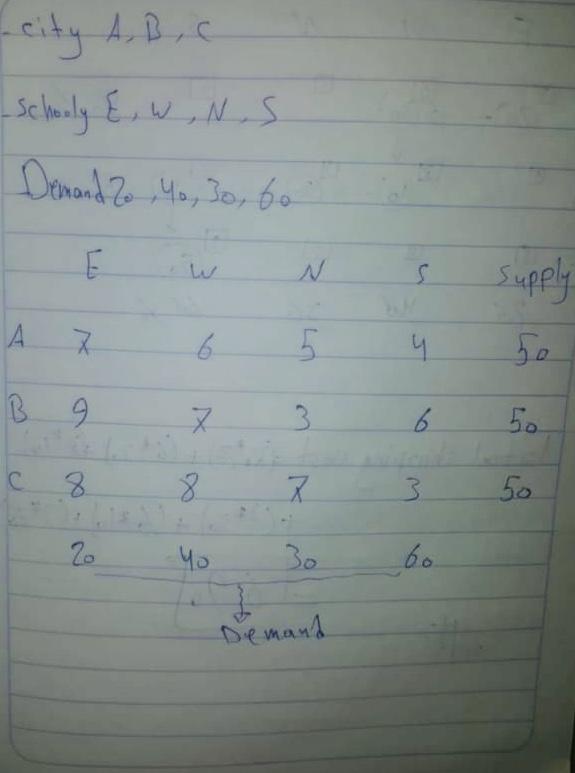 - city A, B, C
- schooly E, W, N, S
Demand 20, 40, 30, 60
E W N S Supply
A 7 6 5 4 50
B 9 7 3 6 50
C 8 8 7 3 50
20 40 30 60
Demand